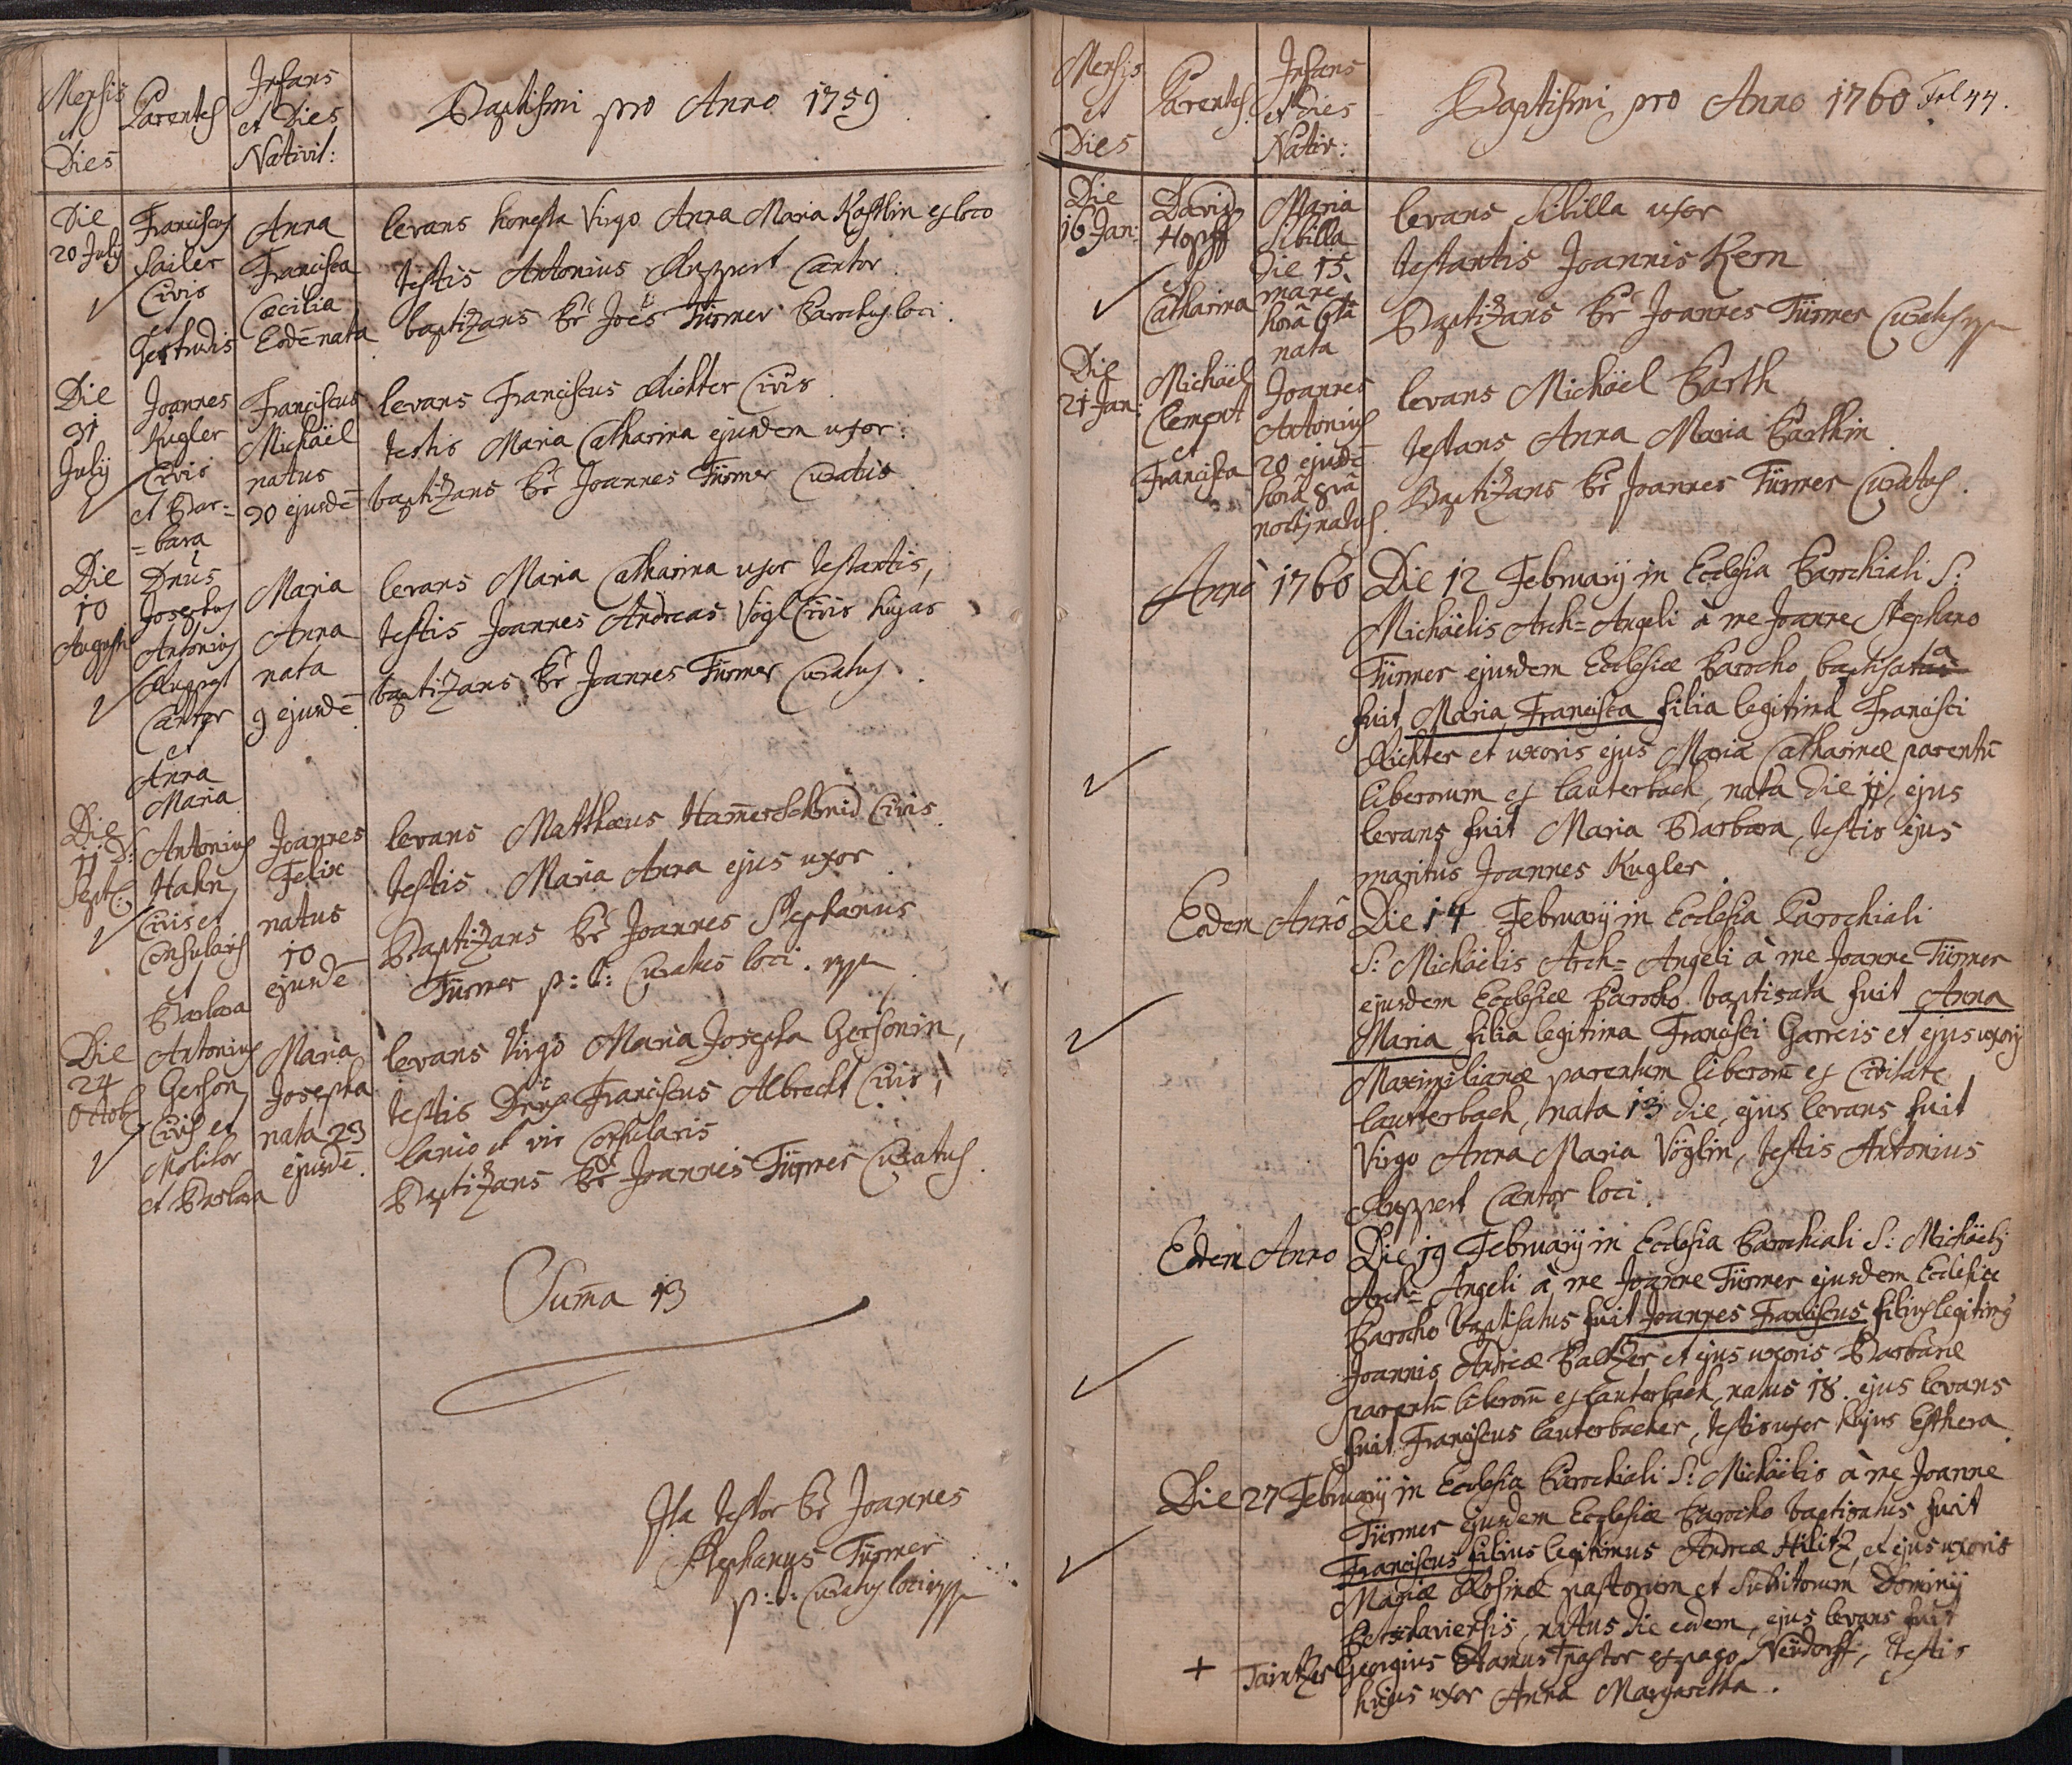 Mensis
et
Dies
Parentes
Infans
et Dies
Nativit:
Baptismi pro Anno 1759
Die
20 July
Franciscus
Sailer
Civis
Gertrudis
Anna
Francisca
Cæcilia
Eodē nata
levans honesta Virgo Anna Maria Kastlin ex loco
testis Antonius Ruppert Cantor
baptizans Pr Joēs Türmer Parochus loci.
Die
31
July
Joannes
Kugler
Civis
et Bar=
=bara
Franciscus
Michaël
natus
30 ejusdē
levans Franciscus Richter Civis
testis Maria Catharina ejusdem uxor.
baptizans Pr Joannes Türmer Curatus
Die
10
Augusti
Dnūs
Josephus
Antonius
Ruppert
Cantor
et
Anna
Maria
Maria
Anna
nata
9 ejusdē
levans Maria Catharina uxor testantis,
testis Joannes Andreas Vögl Civis hujas
baptizans Pr Joannes Türmer Curatus.
Die
11 D:
Sept:
Antonius
Hahn
Civis et
Consularis
et
Barbara
Joannes
Felix
natus
10
ejusdē
levans Matthæus Ham̄erschmid Civis.
testis Maria Anna ejus uxor
Baptizans Pr Joannes Stephanus
Türmer p: t: Curatus loci. mpp
Die
24
Octob:
Antonius
Gerson
Civis et
Molitor
et Barbara
Maria
Josepha
nata 23
ejusdē.
levans Virgo Maria Josepha Gersonin,
testis Dnūs Franciscus Albrecht Civis,
lanio et vir Consularis
Baptizans Pr Joannes Türmer Curatus.
Sum̄a 13
Ita testor Pr Joannes
Stephanus Türmer
p: t: Curatus loci mpp
Mensis
et
Dies
Parentes.
Infans
et Dies
Nativ:
Baptismi pro Anno 1760 Fol 44.
Die
16 Jan:
David
Hopff
et
Catharina
Maria
Sibilla
Die 15
mane
hora 6tā
nata
levans Sibilla uxor
testantis Joannis Kern
Baptizans Pr Joannes Türmer Curatus mpp
Die
21 Jan:
Michaël
Clement
et
Francisca
Joannes
Antonius
20 ejusdē
hora 8vā
noctj natus.
levans Michäel Barth
testans Anna Maria Barthin
Baptizans Pr Joannes Türmer Curatus.
Anno 1760 Die 12 February in Ecclesia Parochiali S:
Michäelis Arch=Angeli à me Joanne Stephano
Türmer ejusdem Ecclesiæ Parocho baptisata
fuit Maria Francisca filia legitima Francisci
Richter et uxoris ejus Mariæ Catharinæ parentū
liberorum ex Lauterbach, nata die 11, ejus
levans fuit Maria Barbara, testis ejus
maritus Joannes Kugler.
Eodem Anno Die 14 February in Ecclesia Parochiali
S: Michäelis Arch=Angeli à me Joanne Türmer
ejusdem Ecclesiæ Parocho baptisata fuit Anna
Maria filia legitima Francisci Garreis et ejus uxoris
Maximilianæ parentum liberorū ex Civitate
Lautterbach, nata 13 die, ejus levans fuit
Virgo Anna Maria Vöglin, testis Antonius
Ruppert Cantor loci.
Eodem Anno Die 19 February in Ecclesia Parochiali S: Michäelis
Arch=Angeli à me Joanne Türmer ejusdem Ecclesiæ
Parocho baptisatus fuit Joannes Franciscus filius legitimus
Joannis Andreæ Baltzer et ejus uxoris Barbaræ
parentū liberorū ex Lauterbach, natus 18. ejus levans
fuit Franciscus Lauterbacher, testis uxor hujus Esthera.
Die 27 February in Ecclesia Parochiali S: Michäelis à me Joanne
Türmer ejusdem Ecclesiæ Parocho baptisatus fuit
Franciscus filius legitimus Andreæ Hilitz, et ejus uxoris
Mariæ Rosinæ pastorum et subditorum Dominÿ
natus die eodem, ejus levans fuit
+ Taintzer Georgius Adamus pastor ex pago Neüdorff, testis
hujus uxor Anna Margaretha.